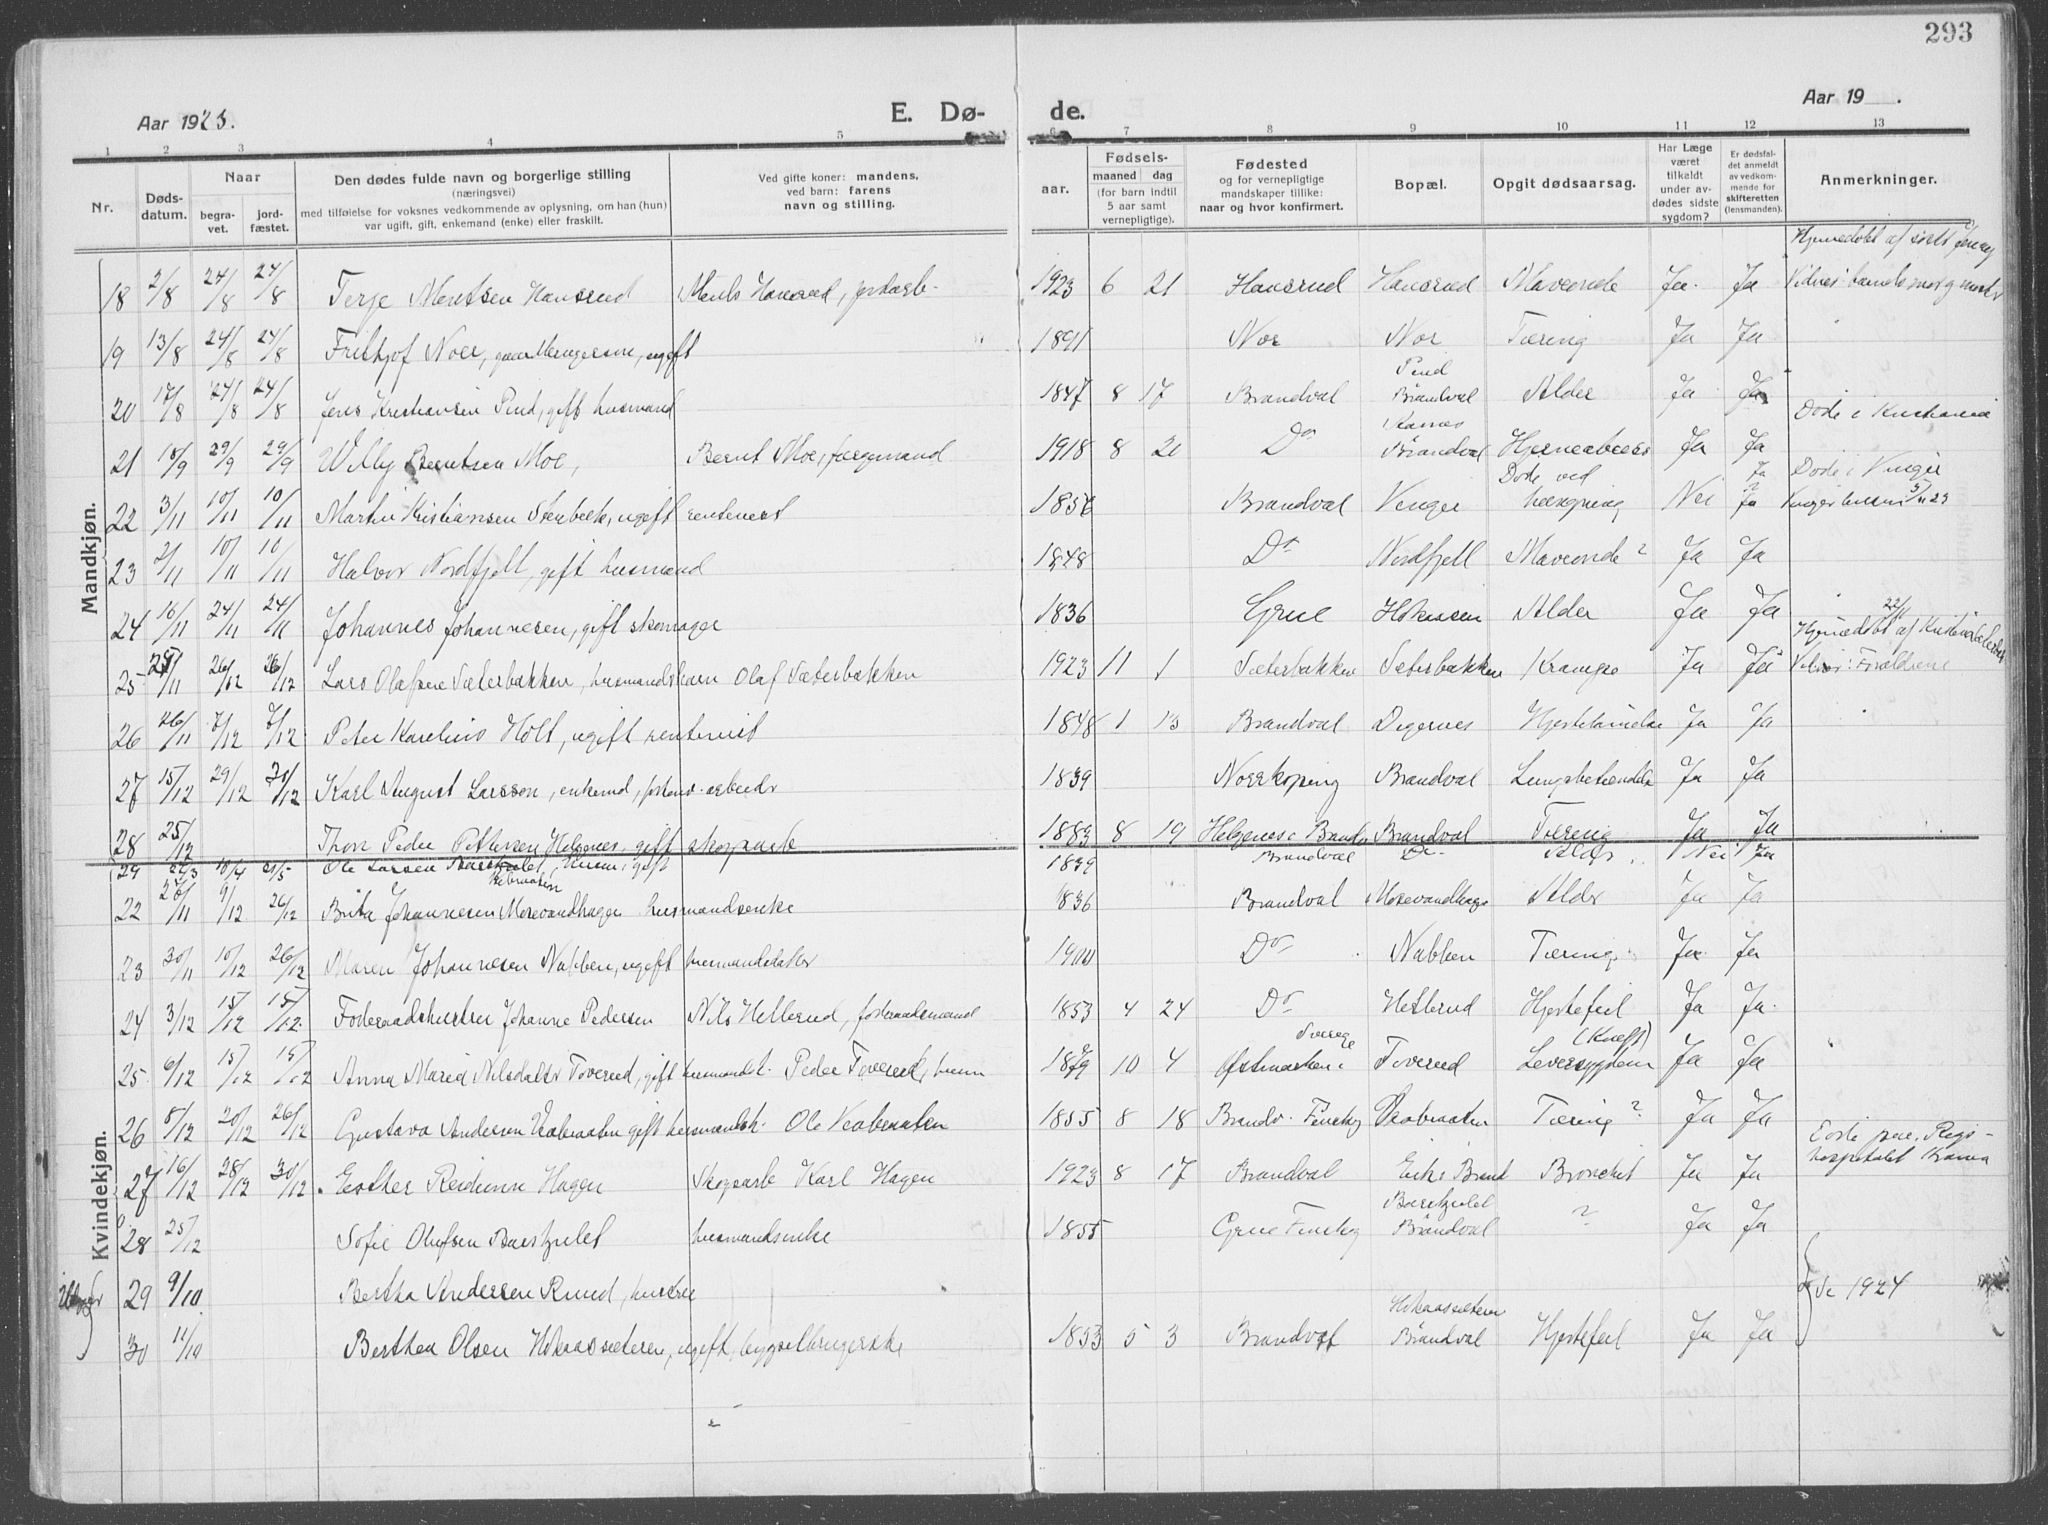 293
Aar 1923.
E. Dø-
de.
Aar 19 .
1 2 3 4 5 6 7 8 9 10 11 12 13
Nr.
Døds-
datum.
Naar
begra-
vet.
jord-
fæstet.
Den dødes fulde navn og borgerlige stilling
(næringsvei)
med tilføielse for voksnes vedkommende av oplysning, om han (hun)
var ugift, gift, enkemand (enke) eller fraskilt.
Ved gifte koner: mandens,
ved barn: farens
navn og stilling.
aar.
Fødsels-
maaned dag
(for barn indtil
5 aar samt
vernepligtige).
Fødested
og for vernepligtige
mandskaper tillike:
naar og hvor konfirmert.
Bopæl.
Opgit dødsaarsag.
Har Læge
været
tilkaldt
under av-
dødes sidste
sygdom?
Er dødsfal-
det anmeldt
av vedkom-
mende for
skifteretten
(lensmanden).
Anmerkninger.
Mandkjøn.
Hjemedøbt af
18 2/8 24/8 24/8 Terje Hansrud Hansrud, 1923 6 21 Hansrud Hansrud Maveonde Ja. Ja
19 13/8 24/8 24/8 Fritjof Noer, ugift 1891 Nor Nor Tæring Ja Ja
Pind
20 17/8 24/8 24/8 Jens Kristiansen Pind, gift husmand 1847 8 17 Brandval Brandval Alder Ja Ja
Døde i Kristiania
21 18/9 29/9 29/9 Willy Berntsen Moe, Bernt Moe, færgemand 1918 8 20 Do Brandval Ja Ja
Døde ved Ja Døde i Vinger
22 3/11 10/11 10/11 Martin Kristiansen Stenbæk, ugift rentenist 1856 Brandval Vinger hængning Nei Ja
23 2/11 10/11 10/11 Halvor Nordfjell, gift husmand 1848 Do Nordfjell Maveonde? Ja Ja
24 16/11 24/11 24/11 Johannes Johannesen, gift skomager 1836 Grue Alder Ja Ja
22/11
Hjemedøbt af
25 /11 26/12 26/12 Lars Olafsen Sæterbakken, husmandsbarn Olaf Sæterbakken 1923 11 1 Sæterbakken Sæterbakken Krampe Ja Ja Vidner: Forældrene
26 26/11 7/12 7/12 Peter Karelius Holt, ugift rentenist 1848 1 13 Brandval Digernes Ja Ja
27 15/12 29/12 30/12 Karl August Larsson, enkemd, arbeider 1839 Norrkoping Brandval Lungebetændelse Ja Ja
28 25/12 Thor Peder Pettersen Helgenes, gift skogsarb 1883 8 19 Helgenes i Brandv Brandval Tæring Ja Ja
29 27/3 10/4 21/5 Ole Larsen husm, gift 1839 Brandval Do Alder Nei Ja
Kvindekjøn.
22 28/11 9/12 26/12 Brita Johannesen Mosevandhagge husmandsenke 1836 Brandval Mosevandhagge Alder Ja Ja
23 30/11 10/12 26/12 Maren Johannesen Nabben, ugift husmandsdatter 1900 Do Nabben Tæring Ja Ja
24 3/12 15/12 15/12 Føderaadshustru Johanne Pedersen Nils Hellerud, føderaadsmand 1853 4 24 Do Hellerud Hjertefeil Ja Ja.
Sverige (Kræft)
25 6/12 15/12 15/12 Anna Maria Nilsdatter Toverud, gift husmandsk. Peder Toverud, husm 1879 10 4 Østmarken i Toverud Leversygdom Ja Ja
26 8/12 20/12 26/12 Gustava Andersen gift husmandsk. Ole 1855 8 18 Brandv. Finskog Tæring? Ja Ja
27 16/12 28/12 30/12 Esther Reidunn Hagen Skogsarb Karl Hagen 1923 8 17 Brandval Bronchit Ja Ja
Døde paa Rigs-
hospitalet Krania
28 25/12 Sofie Olufsen husmandsenke 1855 Grue Finskog Brandval ? Ja Ja
29 9/10 Bertha Andersen Rund, hustru
Se 1924
30 11/10 Berthea Olsen Hokaassæteren, ugift, bygselbrugerske 1853 5 3 Brandval Hokaassæteren Brandval Hjertefeil Ja Ja